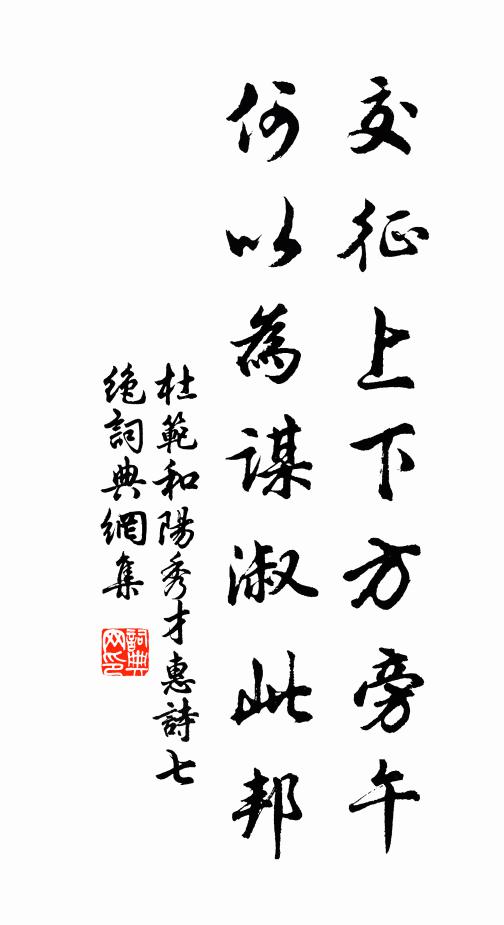 交征上下方旁午
何以為謀淑此邦
杜範和陽秀才惠詩七
絶詞典網集
詞典
网印